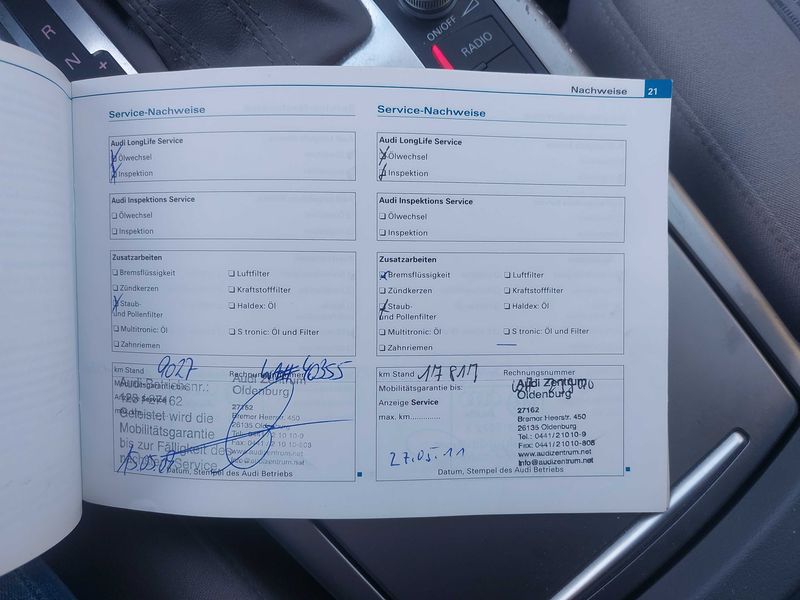 R
N
+
ON/OFF
RADIO
Nachweise 21
Service-Nachweise
Audi LongLife Service
Ölwechsel
Inspektion
Audi Inspektions Service
Ölwechsel
Inspektion
Zusatzarbeiten
Bremsflüssigkeit
Luftfilter
Zündkerzen
Kraftstofffilter
Staub-
und Pollenfilter
Haldex: Öl
Multitronic: Öl
S tronic: Öl und Filter
Zahnriemen
km Stand 9027
Rechnungsnummer 40355
Mobilitätsgarantie bis:
Geleistet wird die
Mobilitätsgarantie
bis zur Fälligkeit des
Service
Audi Zentrum
Oldenburg
27162
Bremer Heerstr. 450
26135 Oldenburg
Tel.: 0441/21010-9
Fax: 0441/21010-808
www.audizentrum.net
info@audizentrum.net
Datum, Stempel des Audi Betriebs
Service-Nachweise
Audi LongLife Service
Ölwechsel
Inspektion
Audi Inspektions Service
Ölwechsel
Inspektion
Zusatzarbeiten
Bremsflüssigkeit
Luftfilter
Zündkerzen
Kraftstofffilter
Staub-
und Pollenfilter
Haldex: Öl
Multitronic: Öl
S tronic: Öl und Filter
Zahnriemen
km Stand 17817
Rechnungsnummer
Mobilitätsgarantie bis:
Anzeige Service
max. km
Audi Zentrum
Oldenburg
27162
Bremer Heerstr. 450
26135 Oldenburg
Tel.: 0441/21010-9
Fax: 0441/21010-808
www.audizentrum.net
info@audizentrum.net
27.05.11
Datum, Stempel des Audi Betriebs